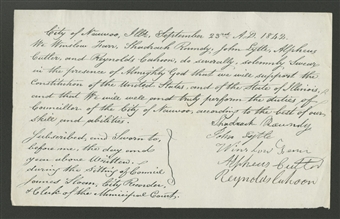 City of Nauvoo, Ills. September 23rd A.D. 1842.
We Winslow Farr, Shadrach Roundy, John Lytle, Alpheus
Cutler, and Reynolds Cahoon, do severally, solemnly swear
in the presence of Almighty God that we will support the
Constitution of the United States, and of the State of Illinois,
and that we will well and truly perform the duties of
Councillor of the City of Nauvoo, according to the best of our
skill and abilities.
Shadrach Roundy
John Lytle
Winslow Farr
Alpheus Cutler
Reynolds Cahoon
Subscribed, and Sworn to,
before me, the day and
year above written,
during the sitting of Council
James Sloan, City Recorder,
& Clerk of the Municipal Court.